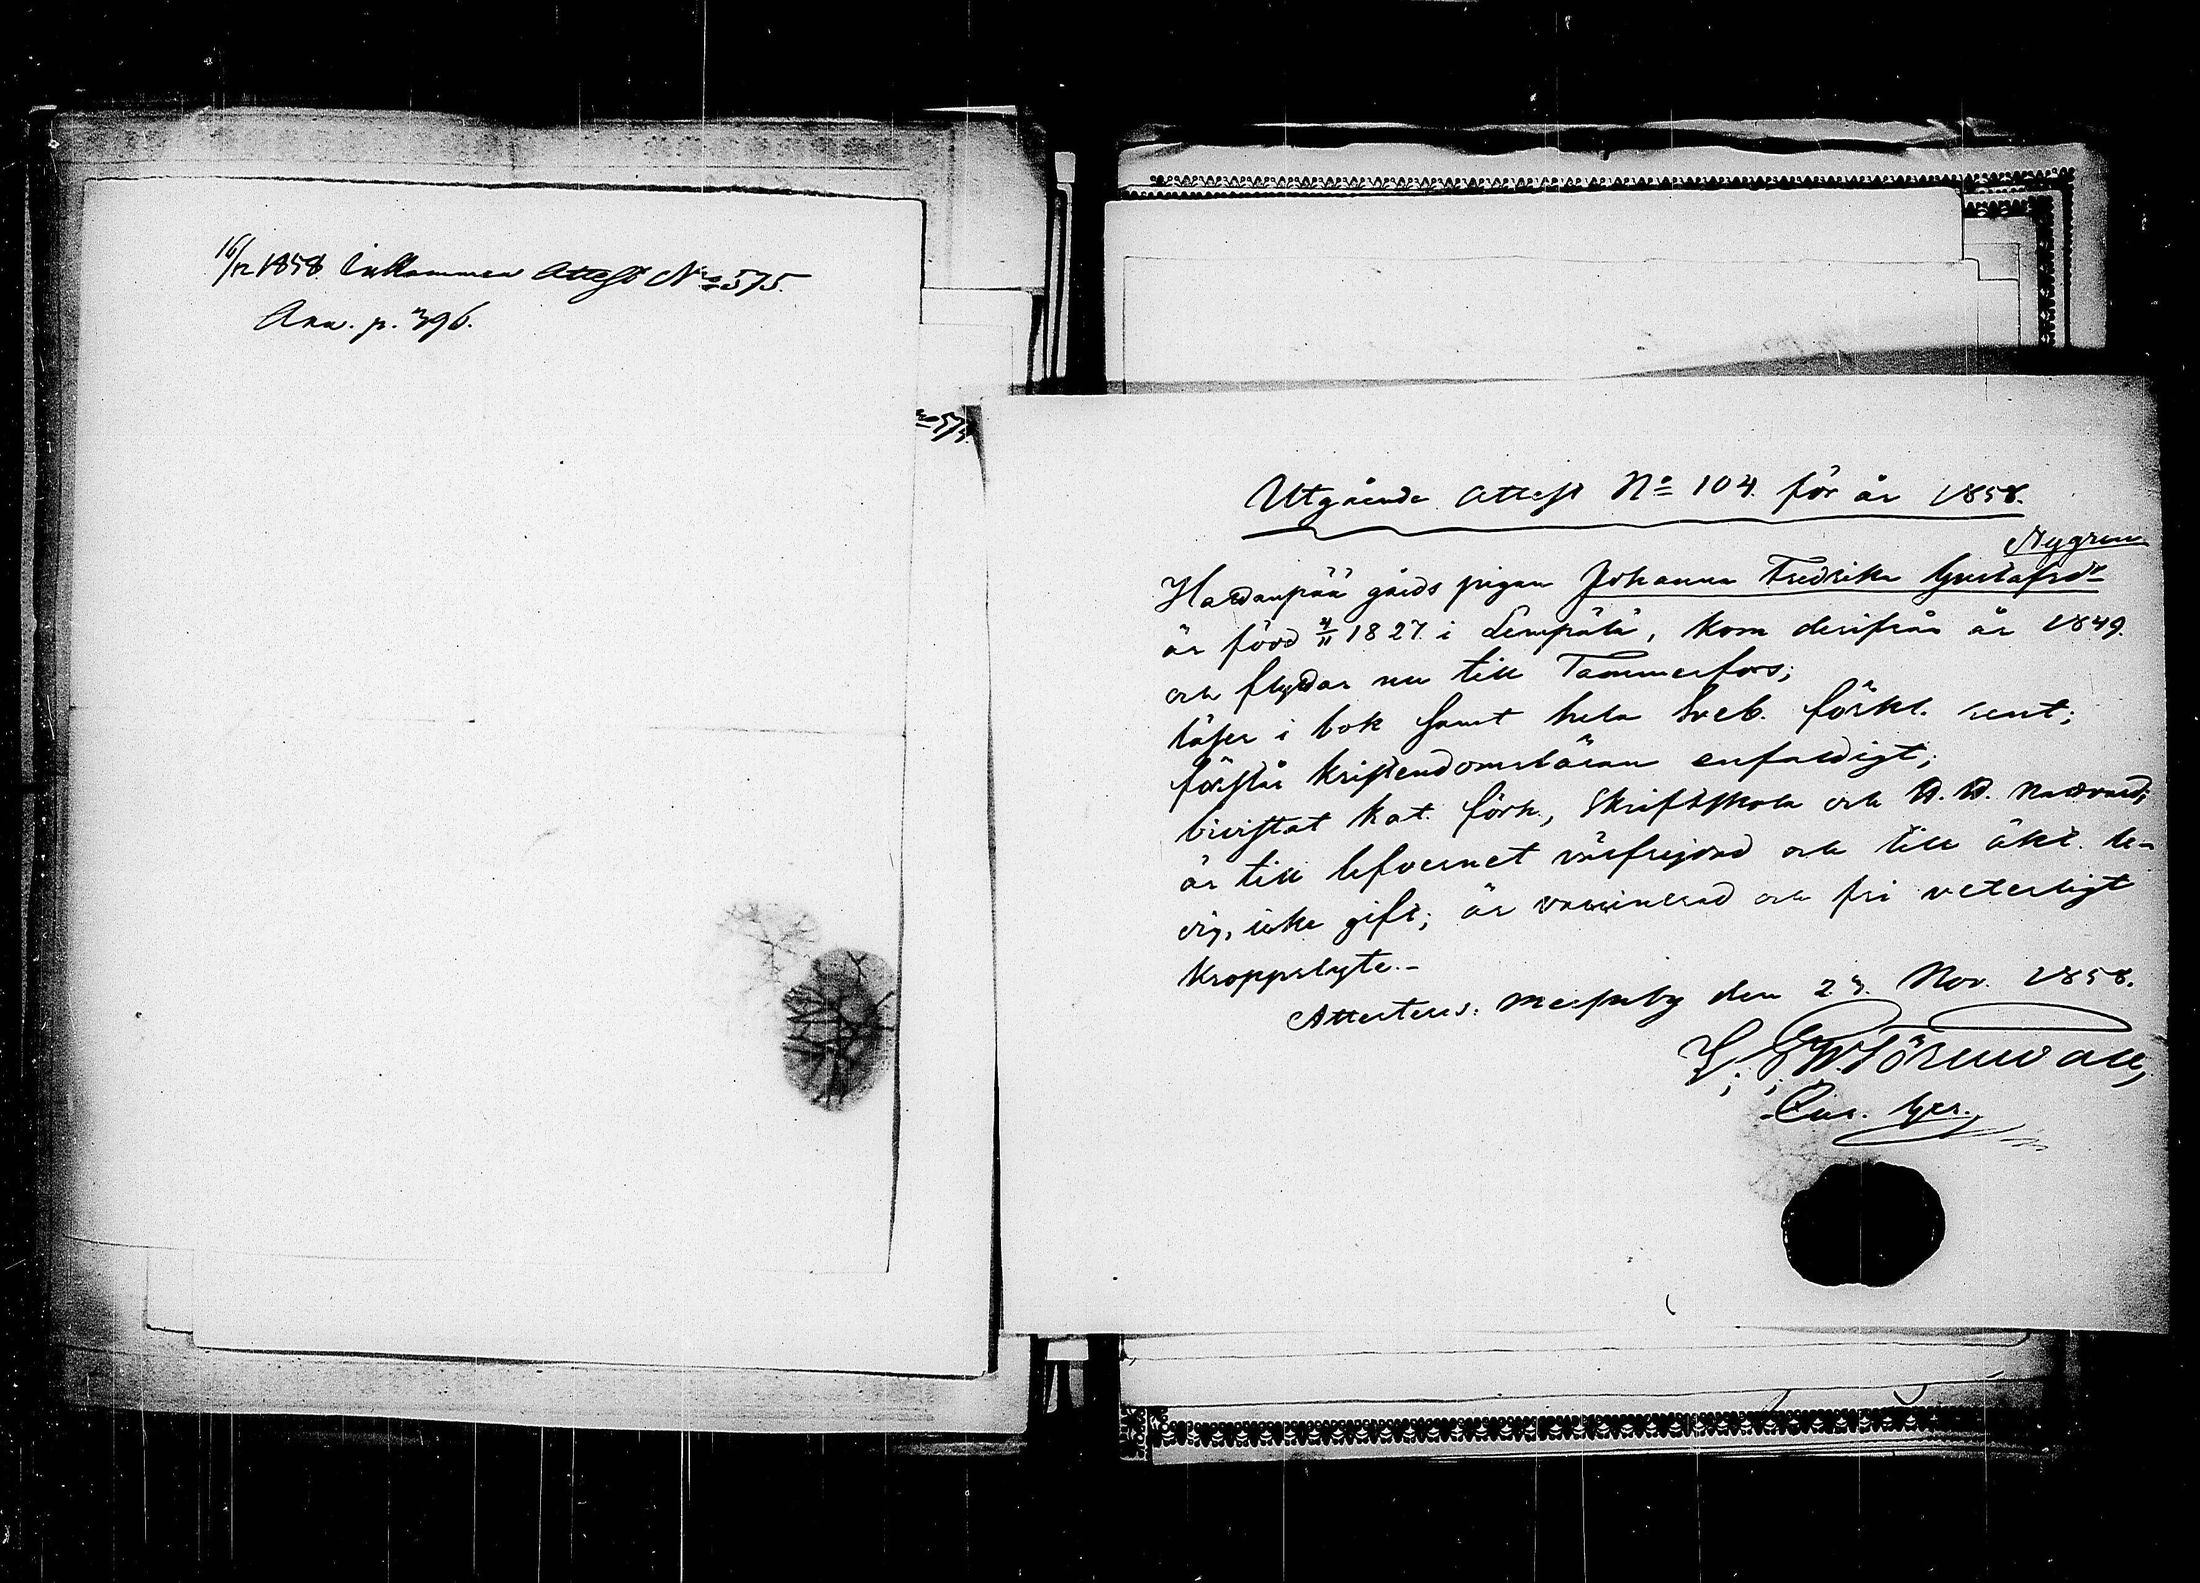 16/12 1858 Inkommen Attest No 575.
Ann. p. 396.
No 574.
Utgående Attest No 104. för år 1858.
Nygren
gårds pigan Johanna Fredrika Gustafsdr
är född 4/11 1827 i Lempälä, kom derifrån år 1849.
och flyttar nu till Tammerfors;
läser i bok samt hela Sveb. förkl. rent;
förstår kristendomsläran enfaldigt;
bivistat kat. förh., skriftskola och H. H. Nattvard;
är till lefvernet välfrejdad och till äkt. le-
dig, icke gift; är vaccinerad och fri veterligt
kroppslyte.-
Attesteras: Messuby den 23. Nov. 1858.
G. W. Törnwall,